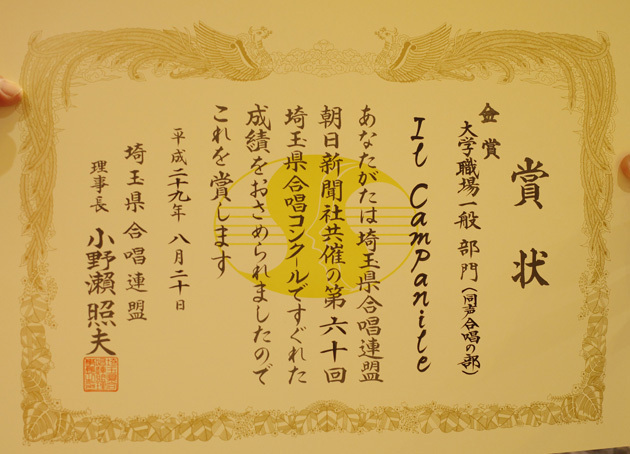 賞状
金賞
大学職場一般部門(同声合唱の部)
Il Campanile
あなたがたは埼玉県合唱連盟
朝日新聞社共催の第六十回
埼玉県合唱コンクールですぐれた
成績をおさめられましたので
これを賞します
平成二十九年八月二十日
埼玉県合唱連盟
理事長 小野瀬照夫